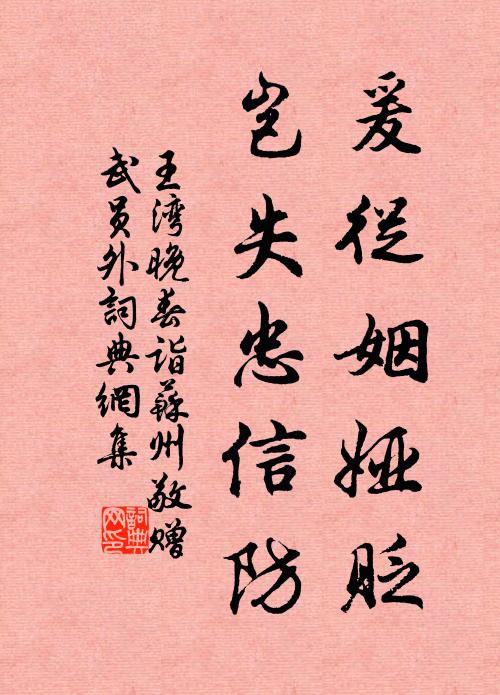 爰從姻婭貶
豈失忠信防
王灣晚春詣蘇州敬贈
武員外詞典網集
詞典
网印